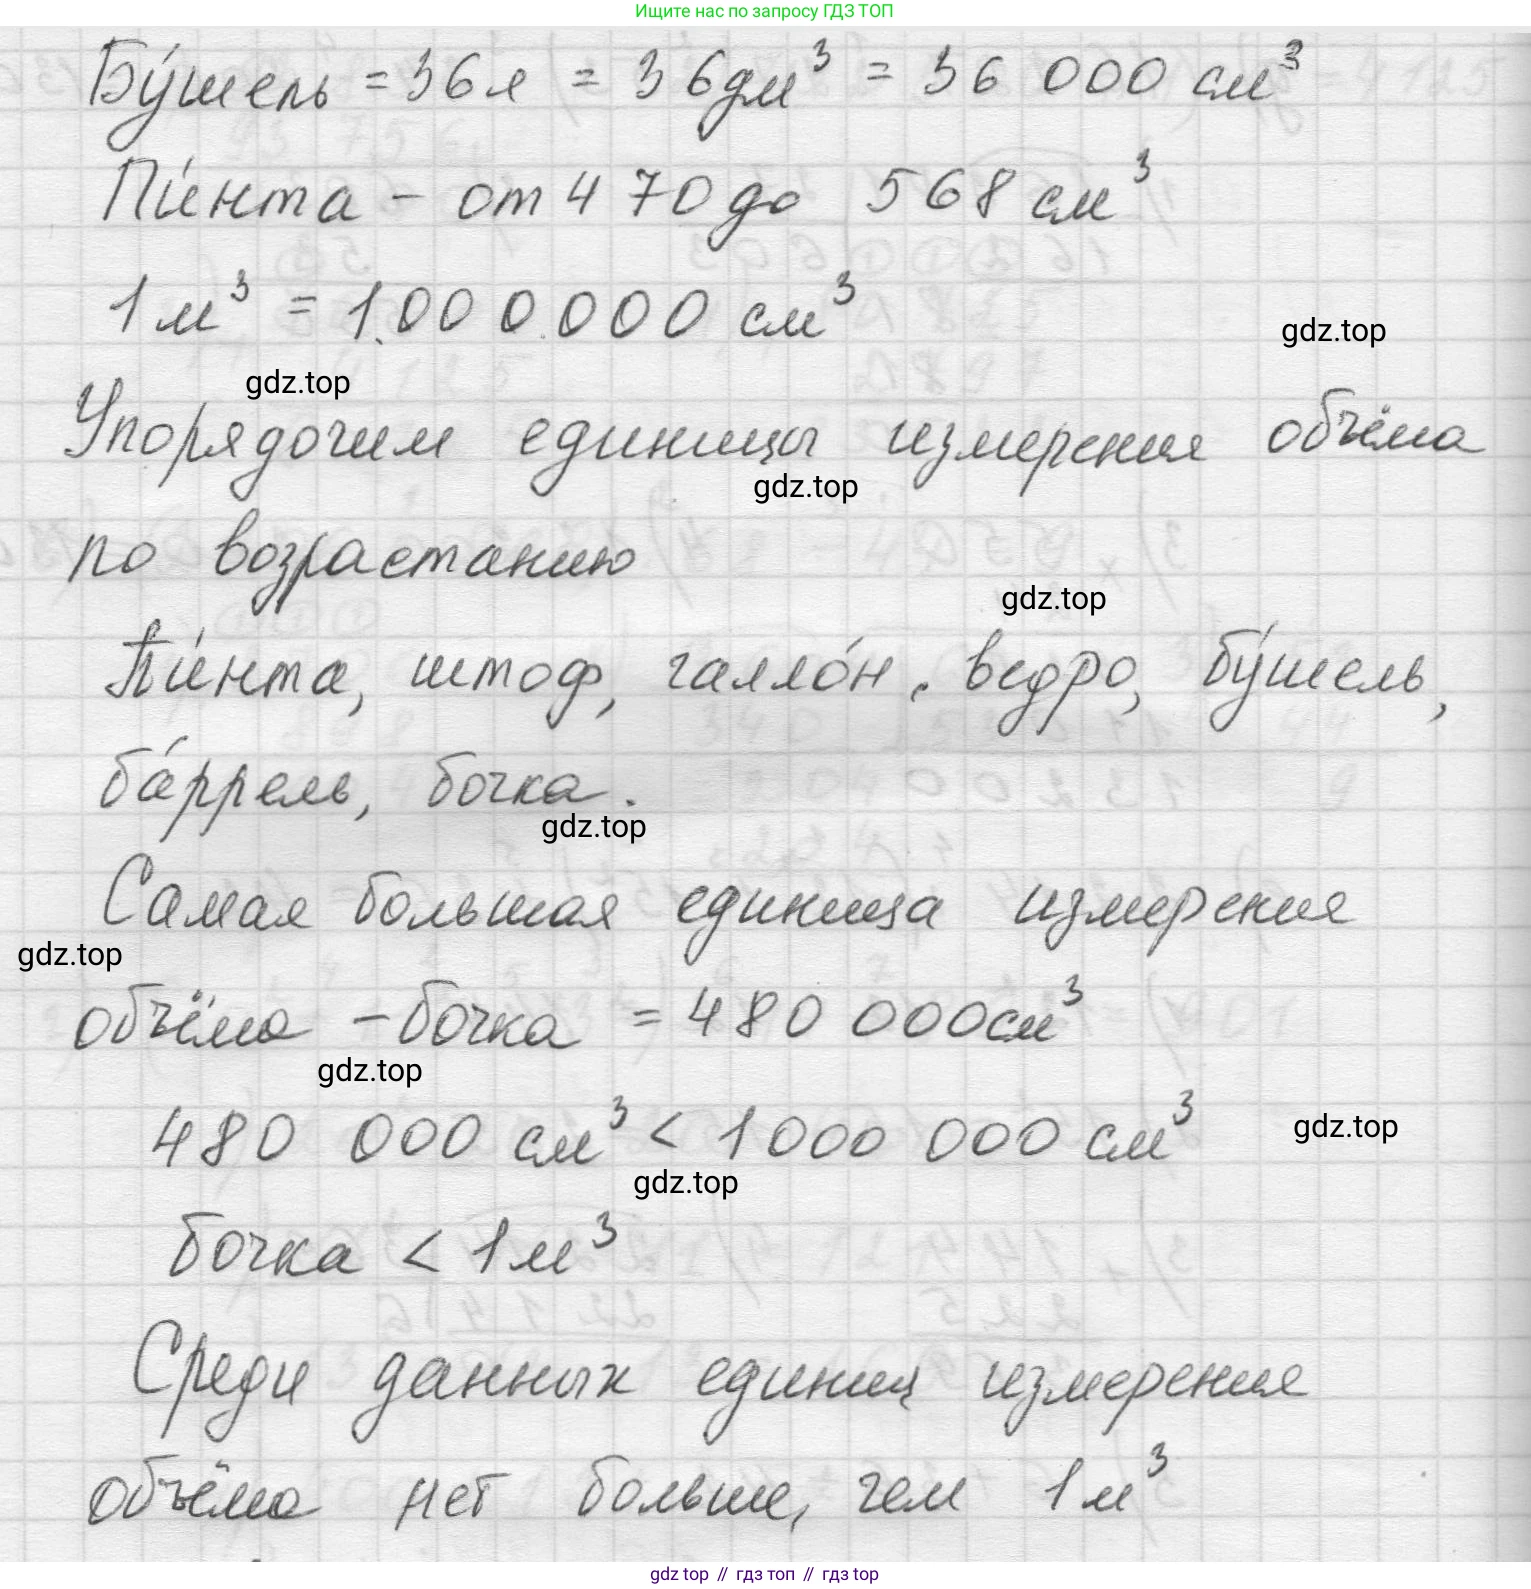 Ищите нас по запросу ГДЗ ТОП
Бу́шель = 36 л = 36 дм³ = 36 000 см³
Пи́нта – от 470 до 568 см³
1 м³ = 1.000.000 см³
gdz.top
gdz.top
Упорядочим единицы измерения объёма
gdz.top
по возрастанию
gdz.top
Пи́нта, штоф, галло́н, ведро, бу́шель,
ба́ррель, бочка.
gdz.top
Самая большая единица измерения
gdz.top
объёма – бочка = 480 000 см³
gdz.top
480 000 см³ < 1 000 000 см³
gdz.top
gdz.top
бочка < 1 м³
Среди данных единиц измерения
объёма нет больше, чем 1 м³
gdz top // гдз топ // гдз top